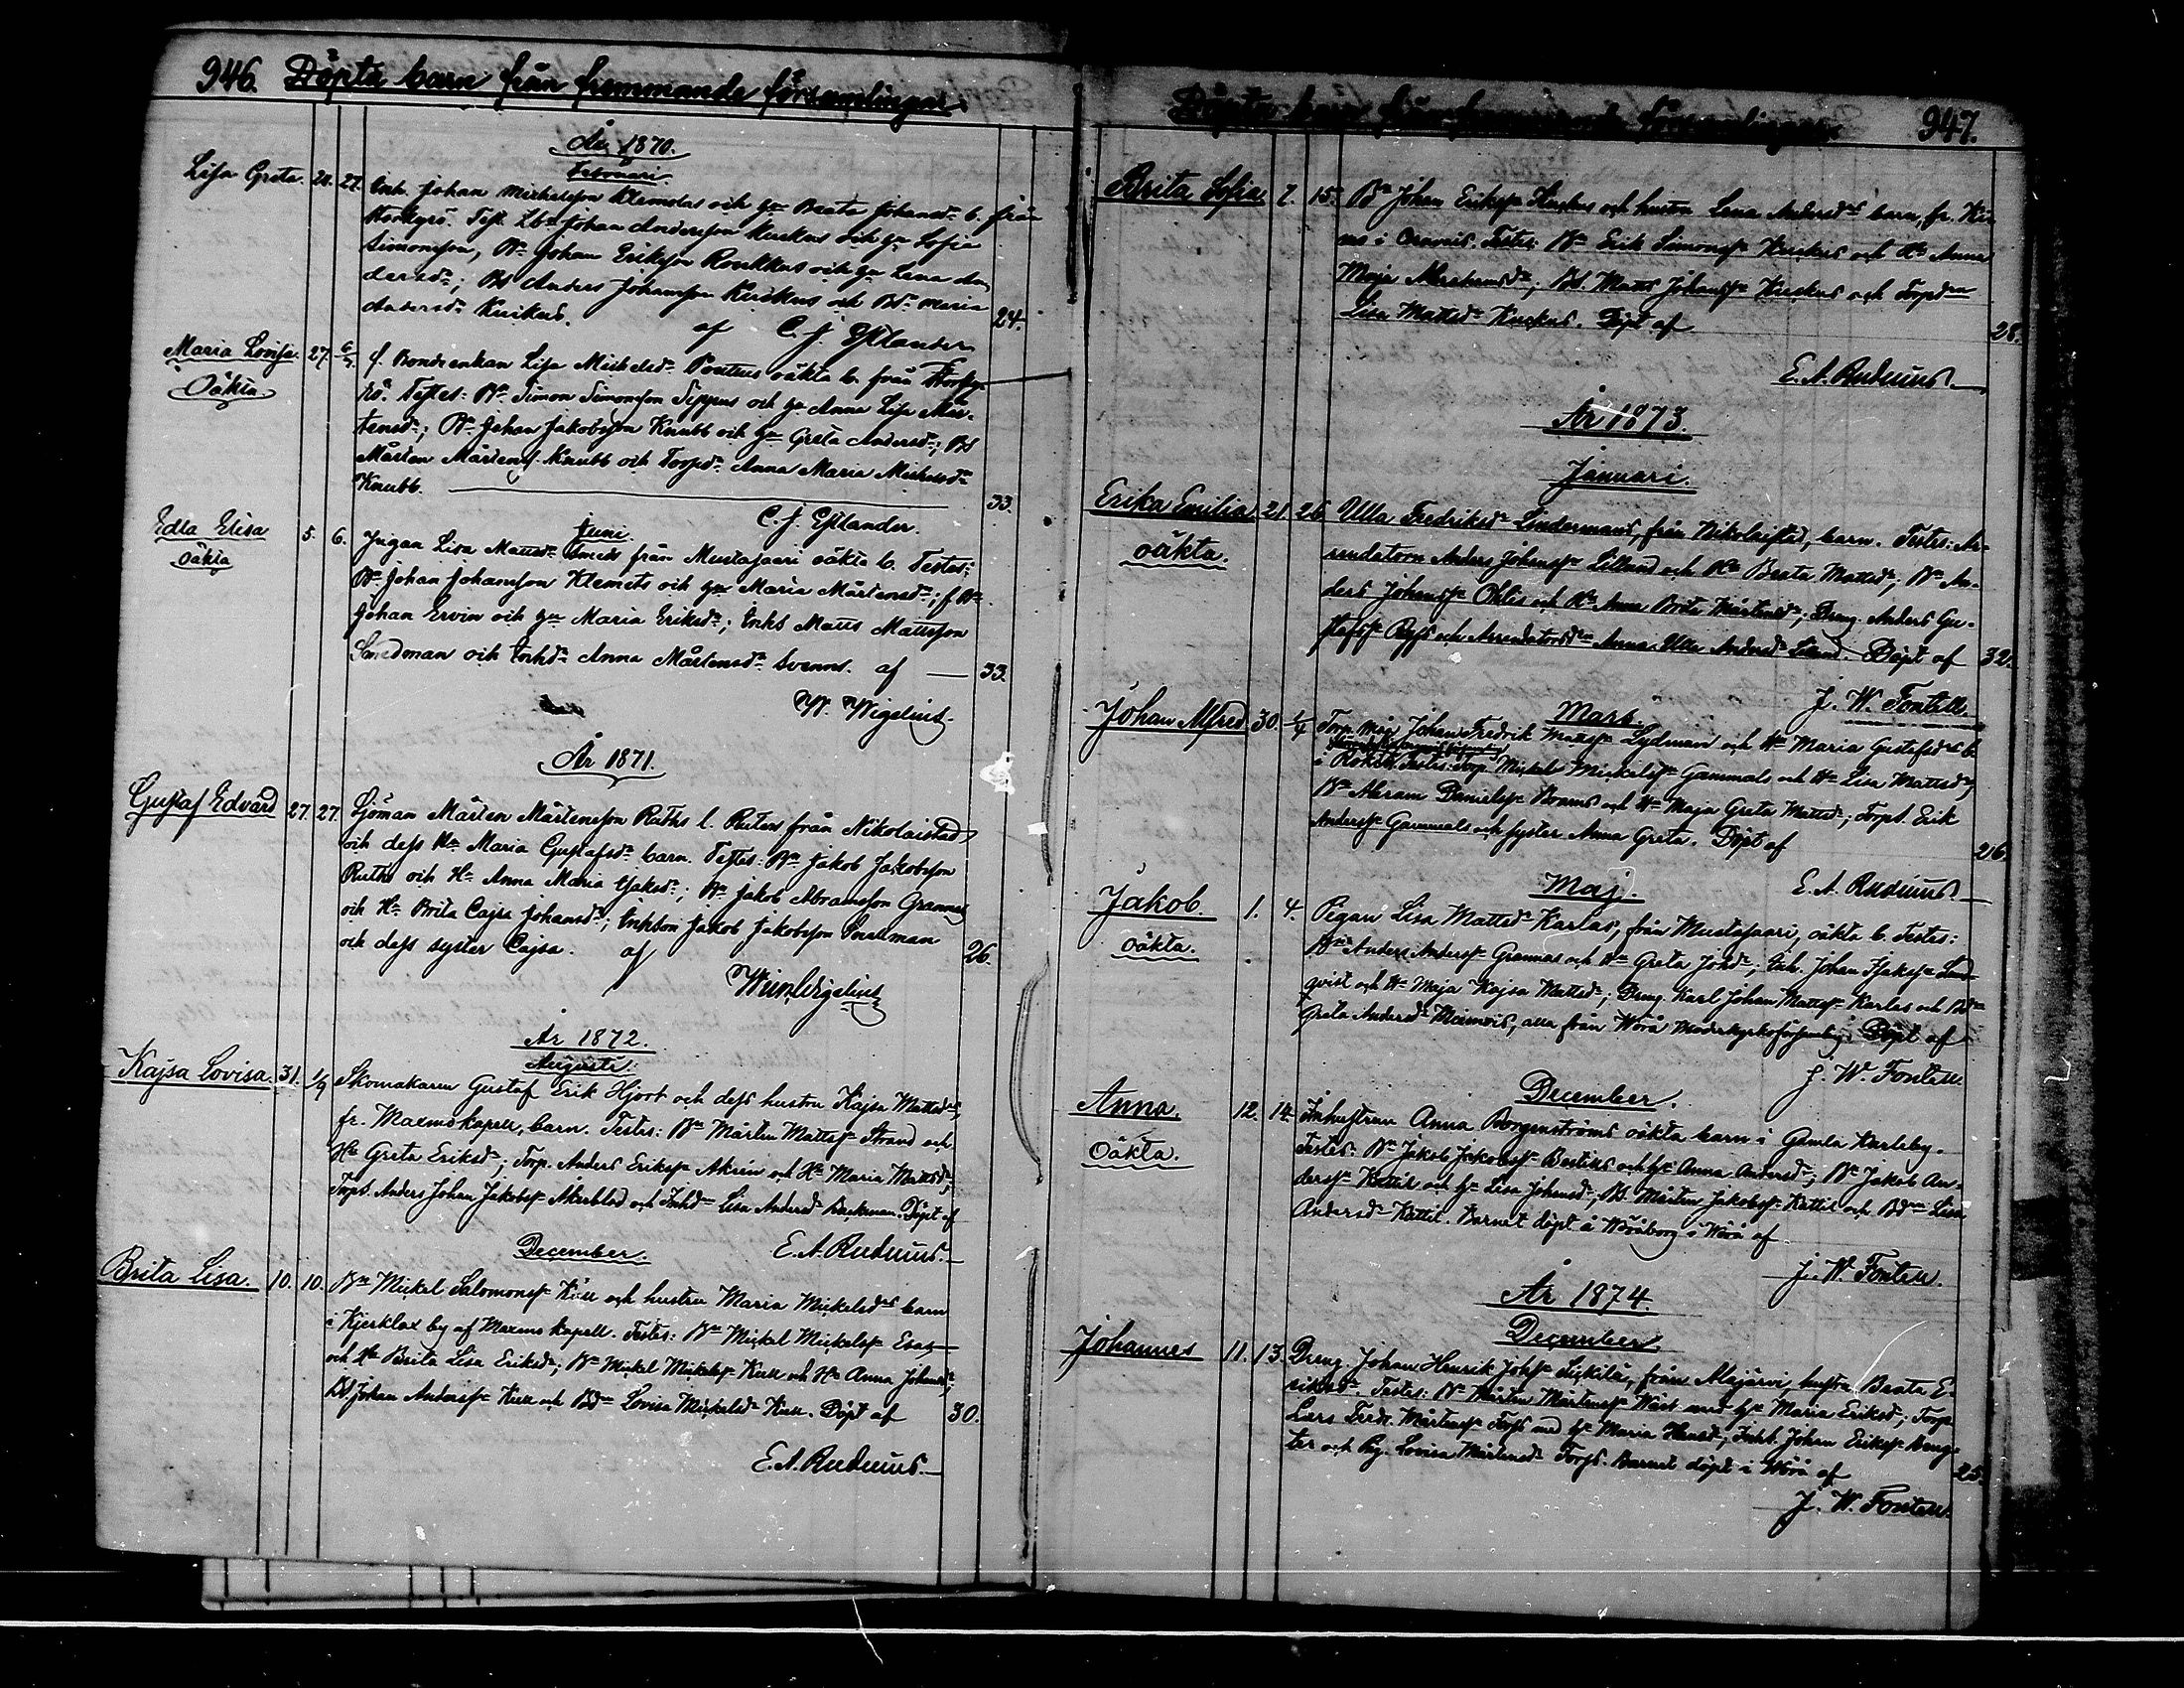 946. Döpta barn från fremmande församlingar.
År 1870.
Februari.
Lisa Greta. 20. 27. Inh. Johan Michelsson Klemolas och h:u Beata Johansd:r b. från
Storkyrö. Test. Johan Andersson Kuckus och h:u Sofia
Simonsson, B:n Johan Eriksson Roukkus och h:u Lena An
dersd:r; Bs Anders Johansson Kuckus och Bd:r Maria
Andersd:r Kuckus. af C. J. Estlander 24.
Maria Lovisa. 27. 6/3. f. Bondeenkan Lisa Michelsd:r Pouttus oäkta b. från Storky-
Oäkta. rö. Testes: B:n Simon Simonsson Sippus och h:u Anna Lisa Mår-
tensd:r; B:n Johan Jakobsson Knubb och h:u Greta Andersd:r; Bs
Mårten Mårtens. Knubb och Torpd:r Anna Maria Michelsd:r
Knubb. 33.
C. J. Estlander.
Juni.
Edla Elisa 5. 6. Pigan Lisa Mattsd:r Smeds från Mustasaari oäkta b. Testes:
oäkta B:n Johan Johansson Klemets och h:u Maria Mårtensd:r; f. B:n
Johan Ervin och h:u Maria Eriksd:r; Inhs Matts Mattsson
Smedman och Inhd:r Anna Mårtensd:r Svenns. af 33.
W. Wigelius.
År 1871.
Gustaf Edvard 27. 27. Sjöman Mårten Mårtensson Ruths l. Rutens från Nikolaistad
och dess H:u Maria Gustafsd:r barn. Testes: B:n Jakob Jakobsson
Ruths och H:u Anna Maria Isaksd:r; B:n Jakob Abramsson Grannas
och H:u Brita Cajsa Johansd:r; Inhson Jakob Jakobsson Snellman
och dess syster Cajsa. af 26.
Wigelius
År 1872.
Augusti.
Kajsa Lovisa. 31. 1/9 Skomakaren Gustaf Erik Hjort och dess hustru Kajsa Mattsd:rs,
fr. Maxmo kapell, barn. Testes: B:n Mårten Mattss:n Strand och
H:u Greta Eriksd:r; Torp. Anders Erikss:n Akrén och H:u Maria Mattsd:r;
Torps. Anders Johan Jakobss:n Åkerblad och Inhd:r Lisa Andersd:r Backman. Döpt af
December. E. A. Rudenius.
Brita Lisa. 10. 10. B:n Mickel Salomonss:n Kull och hustru Maria Mickelsd:rs barn
i Kjerklax by af Maxmo kapell. Testes: B:n Mickel Mickelss:n Esas
och H:u Brita Lisa Eriksd:r; B:n Mickel Mickelss:n Kull och H:u Anna Johansd:r;
Bs. Johan Anderss:n Kull och Bd:r Lovisa Mickelsd:r Kull. Döpt af 30.
E. A. Rudenius.
Döpta barn från fremmande församlingar. 947.
Brita Sofia 7. 15. B:n Johan Erikss:n Kuckus och hustru Lena Andersd:rs barn, fr.
i Testes: B:n Erik Simonss:n Kuckus och H:u Anna
Maja Abrahamsd:r; Bs. Matts Johanss:n Kuckus och Torpd:r
Lisa Mattsd:r Kuckus. Döpt af 28.
E. A. Rudenius.
År 1873.
Januari.
Erika Emilia 21 26 Ulla Fredriksd:r Lindermans, från Nikolaistad, barn. Testes: Ar-
oäkta. rendatorn Anders Johanss:n Lillund och H:u Beata Mattsd:r; B:n An-
ders Johanss:n Öhlis och H:u Anna Brita Mårtensd:r; Dreng. Anders Gu-
stafss:n och Arrendatorsd:r Anna Ulla Andersd:r Lilund. Döpt af 32.
Mars. J. W. Fontell.
Johan Alfred. 30. 1/4 Torp. måg Johan Fredrik Mattss:n Lydman och H:u Maria Gustafsd:rs b.
i Testes: Torp. Mickel Mickelss:n Gammals och H:u Lisa Mattsd:r;
B:n Abram Danielss:n Brams och H:u Maja Greta Mattsd:r; Torps. Erik
Anderss:n Gammals och syster Anna Greta. Döpt af 26.
Maj. E. A. Rudenius
Jakob. 1. 4. Pigan Lisa Mattsd:r Karlas, från Mustasaari, oäkta b. Testes:
oäkta. B:n Anders Anderss:n Grannas och H:u Greta Johsd:r; Inh. Johan Isakss:n Lund
qvist och H:u Maja Kajsa Mattsd:r; Dreng. Karl Johan Mattss:n Karlas och Bd:r
Greta Andersd:r, alla från Wörå moderkyrkoförsamling. Döpt af
J. W. Fontell.
December.
Anna. 12. 14. Inhustrun Anna Borgenströms oäkta barn i Gamla Karleby.
Oäkta. Testes: B:n Jakob Jakobss:n och H:u Anna Andersd:r; B:n Jakob An-
derss:n Kattil och H:u Lisa Johansd:r; Bs. Mårten Jakobss:n Kattil och Bd:r Lisa
Andersd:r Kattil. Barnet döpt å Wöråborg i Wörå af
J. W. Fontell.
År 1874.
December.
Johannes 11. 13. Dreng. Johan Henrik Johss:n från Alajärvi, hustru Beata E-
riksd:r. Testes: B:n Mårten Mårtenss:n Wäst med H:u Maria Eriksd:r; Torp.
Lars Ferdr. Mårtenss:n Fors med H:u Maria Hansd:r; Inhs. Johan Erikss:n Beng-
ter och Pig. Lovisa Mårtensd:r Forss. Barnet döpt i Wörå af 25.
J. W. Fontell.